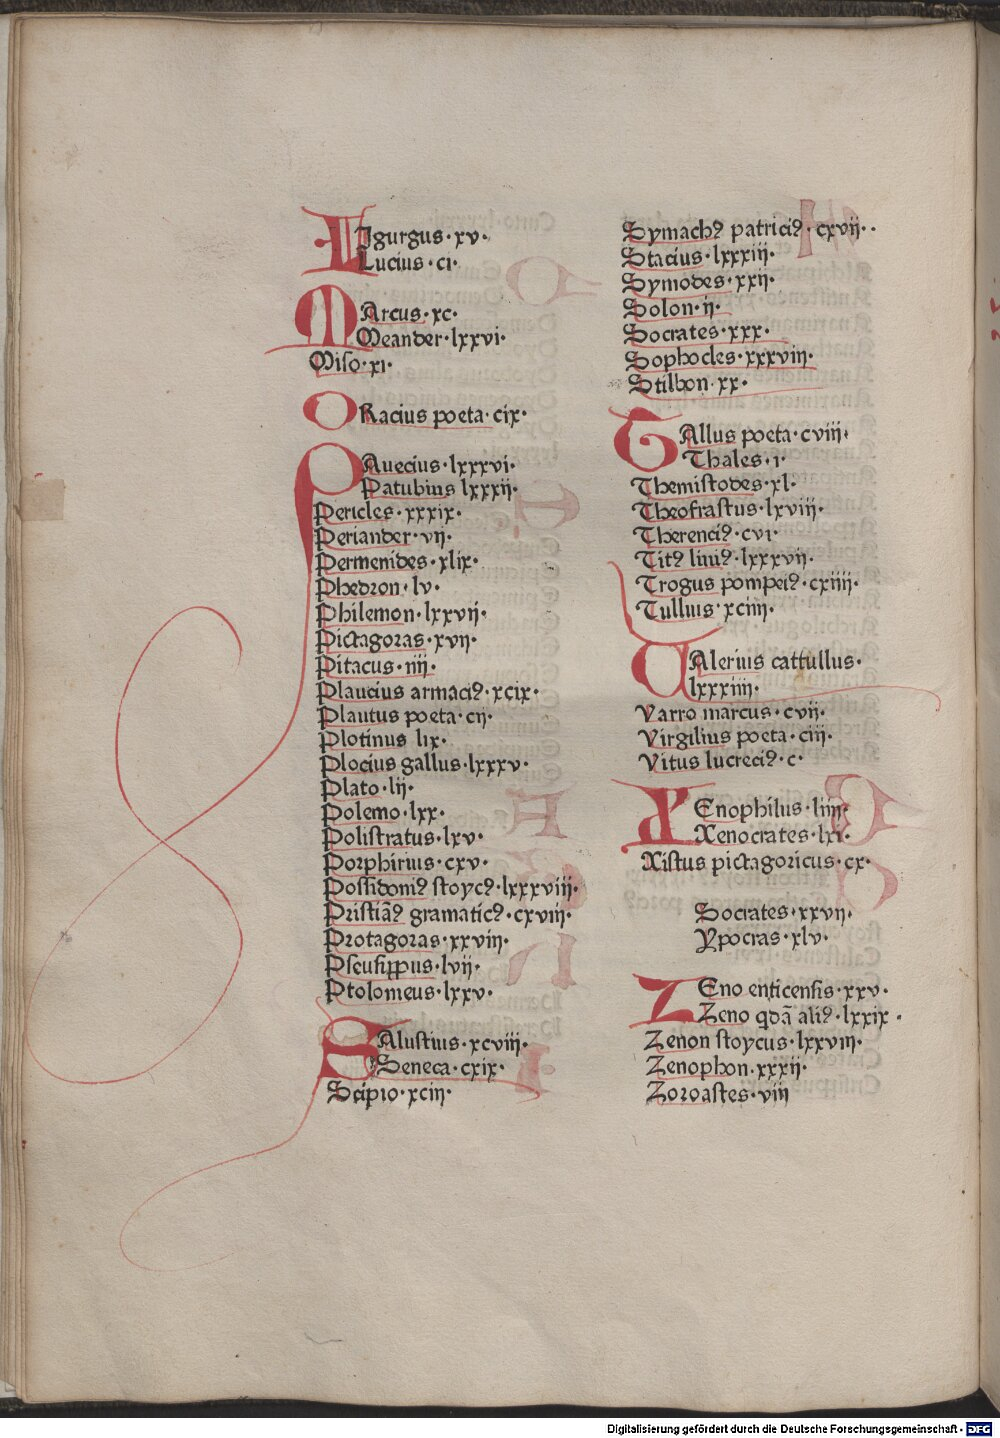 LIgurgus·xv·
Lucius·ci·
MArcus·xc·
Meander·lxxvi·
Miso·xi·
ORacius poeta·cix·
PAuecius·lxxxvi·
Patubius lxxxij·
Pericles·xxxix·
Periander·vij·
Permenides·xlix·
Phedron·lv·
Philemon·lxxvij·
Pictagoras·xvij·
Pitacus·iiij·
Plaucius armaciꝰ·xcix·
Plautus poeta·cij·
Plotinus lix·
Plocius gallus·lxxxv·
Plato·lij·
Polemo·lxx·
Polistratus·lxv·
Porphirius·cxv·
Possidoniꝰ stoycꝰ·lxxxviij·
Pristiãꝰ gramaticꝰ·cxviij·
Protagoras·xxviij·
Pseusippus·lvij·
Ptolomeus·lxxv·
SAlustius·xcviij·
Seneca·cxix·
Scipio·xciij·
Symachꝰ patriciꝰ·cxvij·
Stacius·lxxxiij·
Symodes·xxij·
Solon·ij·
Socrates·xxx·
Sophocles·xxxviij·
Stilbon·xx·
GAllus poeta·cviij·
Thales·i·
Themistodes·xl·
Theofrastus·lxviij·
Therenciꝰ·cvi·
Titꝰ liuiꝰ·lxxxvij·
Trogus pompeiꝰ·cxiiij·
Tullius·xciiij·
VAlerius cattullus·
lxxxiiij·
Varro marcus·cvij·
Virgilius poeta·ciij·
Vitus lucreciꝰ·c·
XEnophilus·liiij·
Xenocrates·lxi·
Xistus pictagoricus·cx·
Socrates·xxvij·
Ypocras·xlv·
ZEno enticensis·xxv·
Zeno qdã aliꝰ·lxxix·
Zenon stoycus·lxxviij·
Zenophon·xxxij·
Zoroastes·viij
Digitalisierung gefördert durch die Deutsche Forschungsgemeinschaft · DFG